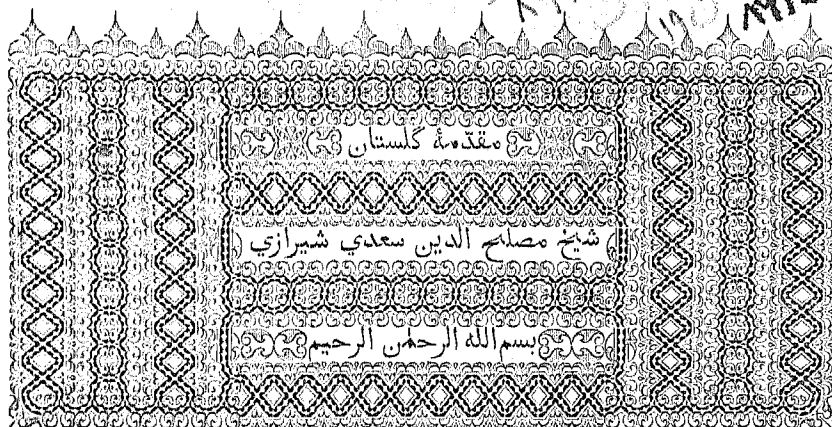 مقدّمهٔ گلستان
شیخ مصلح الدین سعدي شیرازي
بسم الله الرحمٰن الرحیم